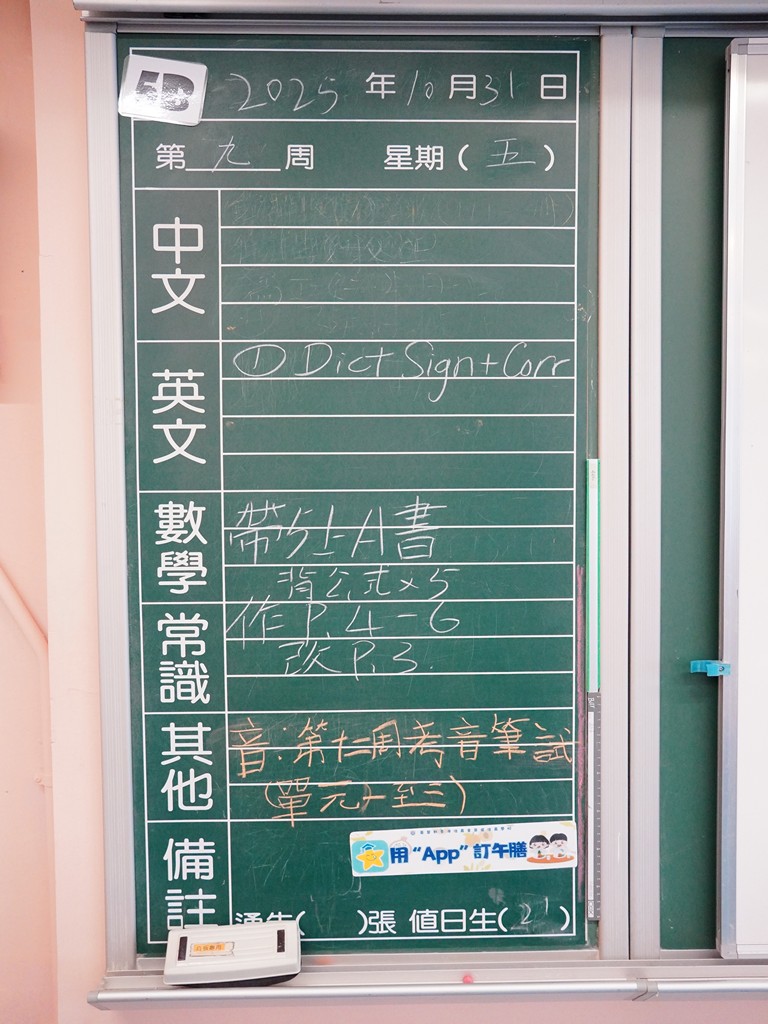 5B
2025年10月31日
第九周 星期(五)
中文
英文
① Dict Sign + Corr
數學
帶5上A書
背公式x5
常識
作P.4-6
改P.3.
其他
音:第十二周考音筆試
(單元一至三)
備註
用“App”訂午膳
通告( )張 值日生(21)